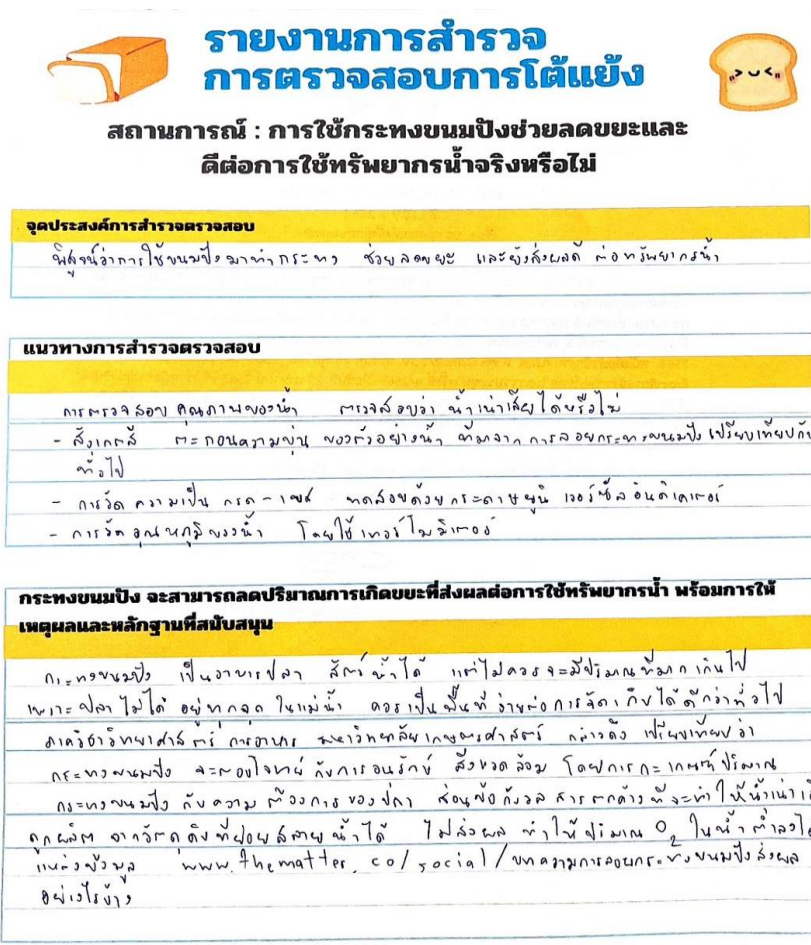 รายงานการสำรวจ
การตรวจสอบการโต้แย้ง
สถานการณ์ : การใช้กระทงขนมปังช่วยลดขยะและ
ดีต่อการใช้ทรัพยากรน้ำจริงหรือไม่
จุดประสงค์การสำรวจตรวจสอบ
พิสูจน์ว่าการใช้ขนมปังมาทำกระทง ช่วยลดขยะ และยังส่งผลดี ต่อทรัพยากรน้ำ
แนวทางการสำรวจตรวจสอบ
การตรวจสอบ คุณภาพของน้ำ ตรวจสอบว่า น้ำเน่าเสียได้หรือไม่
- สังเกตสี ตะกอนความขุ่น ของตัวอย่างน้ำ ที่มาจาก การลอยกระทงขนมปัง เปรียบเทียบกับ
ทั่วไป
- การวัด ความเป็น กรด - เบส ทดสอบด้วยกระดาษยูนิเวอร์ซัลอินดิเคเตอร์
- การวัดอุณหภูมิของน้ำ โดยใช้เทอร์โมมิเตอร์
กระทงขนมปัง จะสามารถลดปริมาณการเกิดขยะที่ส่งผลต่อการใช้ทรัพยากรน้ำ พร้อมการให้
เหตุผลและหลักฐานที่สนับสนุน
กระทงขนมปัง เป็นอาหารปลา สัตว์น้ำได้ แต่ไม่ควรจะมีปริมาณที่มากเกินไป
เพราะปลาไม่ได้ อยู่ทุกจุด ในแม่น้ำ ควรเป็นพื้นที่ง่ายต่อการจัดเก็บได้ดีกว่าทั่วไป
ภาควิชาวิทยาศาสตร์ การอาหาร มหาวิทยาลัยเกษตรศาสตร์ กล่าวถึง เปรียบเทียบว่า
กระทงขนมปัง จะตอบโจทย์ กับการอนุรักษ์ สิ่งแวดล้อม โดยการกะเกณฑ์ปริมาณ
กระทงขนมปัง กับความต้องการของปลา ส่วนข้อกังวล สารตกค้างที่จะทำให้น้ำเน่า
ถูกผลิต จากวัตถุดิบที่ย่อยสลายน้ำได้ ไม่ส่งผล ทำให้ปริมาณ O2 ในน้ำต่ำลง
แหล่งข้อมูล www.thematter.co/social/บทความการลอยกระทงขนมปังส่งผล
อย่างไรบ้าง